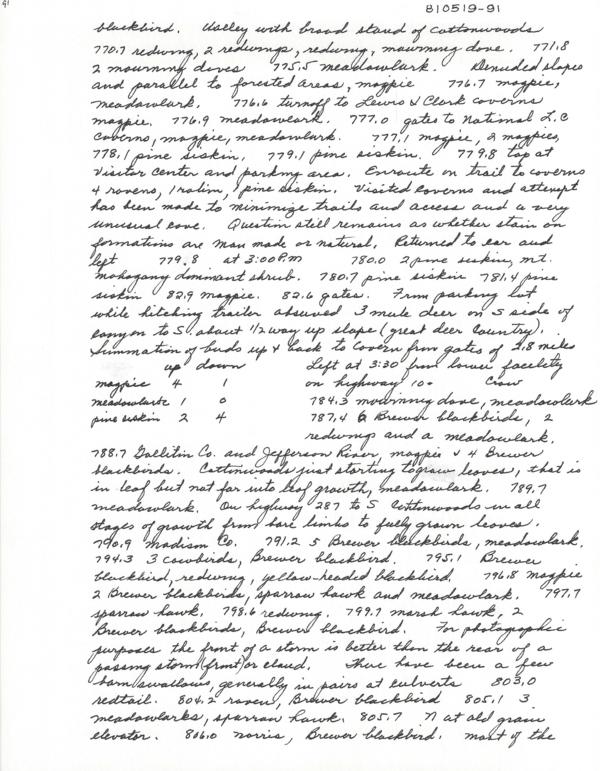 91
810519-91
blackbird. Valley with broad stand of cottonwoods
770.7 redwing, 2 redwings, redwing, mourning dove. 771.8
2 mourning doves 775.5 meadowlark. Denuded slopes
and parallel to forested areas, magpie 776.7 magpie,
meadowlark. 776.6 turnoff to Lewis & Clark caverns
magpie. 776.9 meadowlark. 777.0 gates to National L.C
Caverns, magpie, meadowlark. 777.1 magpie, 2 magpies,
778.1 pine siskin. 779.1 pine siskin. 779.8 top at
Visitor Center and parking area. Enroute on trail to caverns
4 ravens, 1 robin, 1 pine siskin. Visited caverns and attempt
has been made to minimize trails and access and a very
unusual cave. Question still remains as whether stain on
formations are man made or natural. Returned to car and
left 779.8 at 3:00 PM 780.0 2 pine siskin, mt.
mahogany dominant shrub. 780.7 pine siskin 781.4 pine
siskin 82.9 magpie. 82.6 gates. From parking lot
while hitching trailer observed 3 mule deer on S side of
canyon to S. about 1/2 way up slope (great deer country).
Summation of birds up & back to cavern from gates of 2.8 miles
up down Left at 3:30 from lower facility
magpie 4 1 on highway 10. Crow
meadowlark 1 0 784.3 mourning dove, meadowlark
pine siskin 2 4 787.4 6 Brewer blackbirds, 2
redwings and a meadowlark.
788.7 Gallitin Co. and Jefferson River, magpie & 4 Brewer
blackbirds. Cottonwoods just starting to grow leaves, that is
in leaf but not far into leaf growth, meadowlark. 789.7
meadowlark. On highway 287 to S cottonwoods in all
stages of growth from bare limbs to fully grown leaves.
790.9 Madison Co. 791.2 5 Brewer blackbirds, meadowlark.
794.3 3 cowbirds, Brewer blackbird. 795.1 Brewer
blackbird, redwing, yellow-headed blackbird. 796.8 magpie
2 Brewer blackbirds, sparrow hawk and meadowlark. 797.7
sparrow hawk. 798.6 redwing. 799.7 marsh hawk, 2
Brewer blackbirds, Brewer blackbird. For photographic
purposes the front of a storm is better than the rear of a
passing storm (front) or cloud. There have been a few
barn swallows, generally in pairs at culverts 803.0
redtail. 804.2 raven, Brewer blackbird 805.1 3
meadowlarks, sparrow hawk. 805.7 N at old grain
elevator. 806.0 Norris, Brewer blackbird. most of the